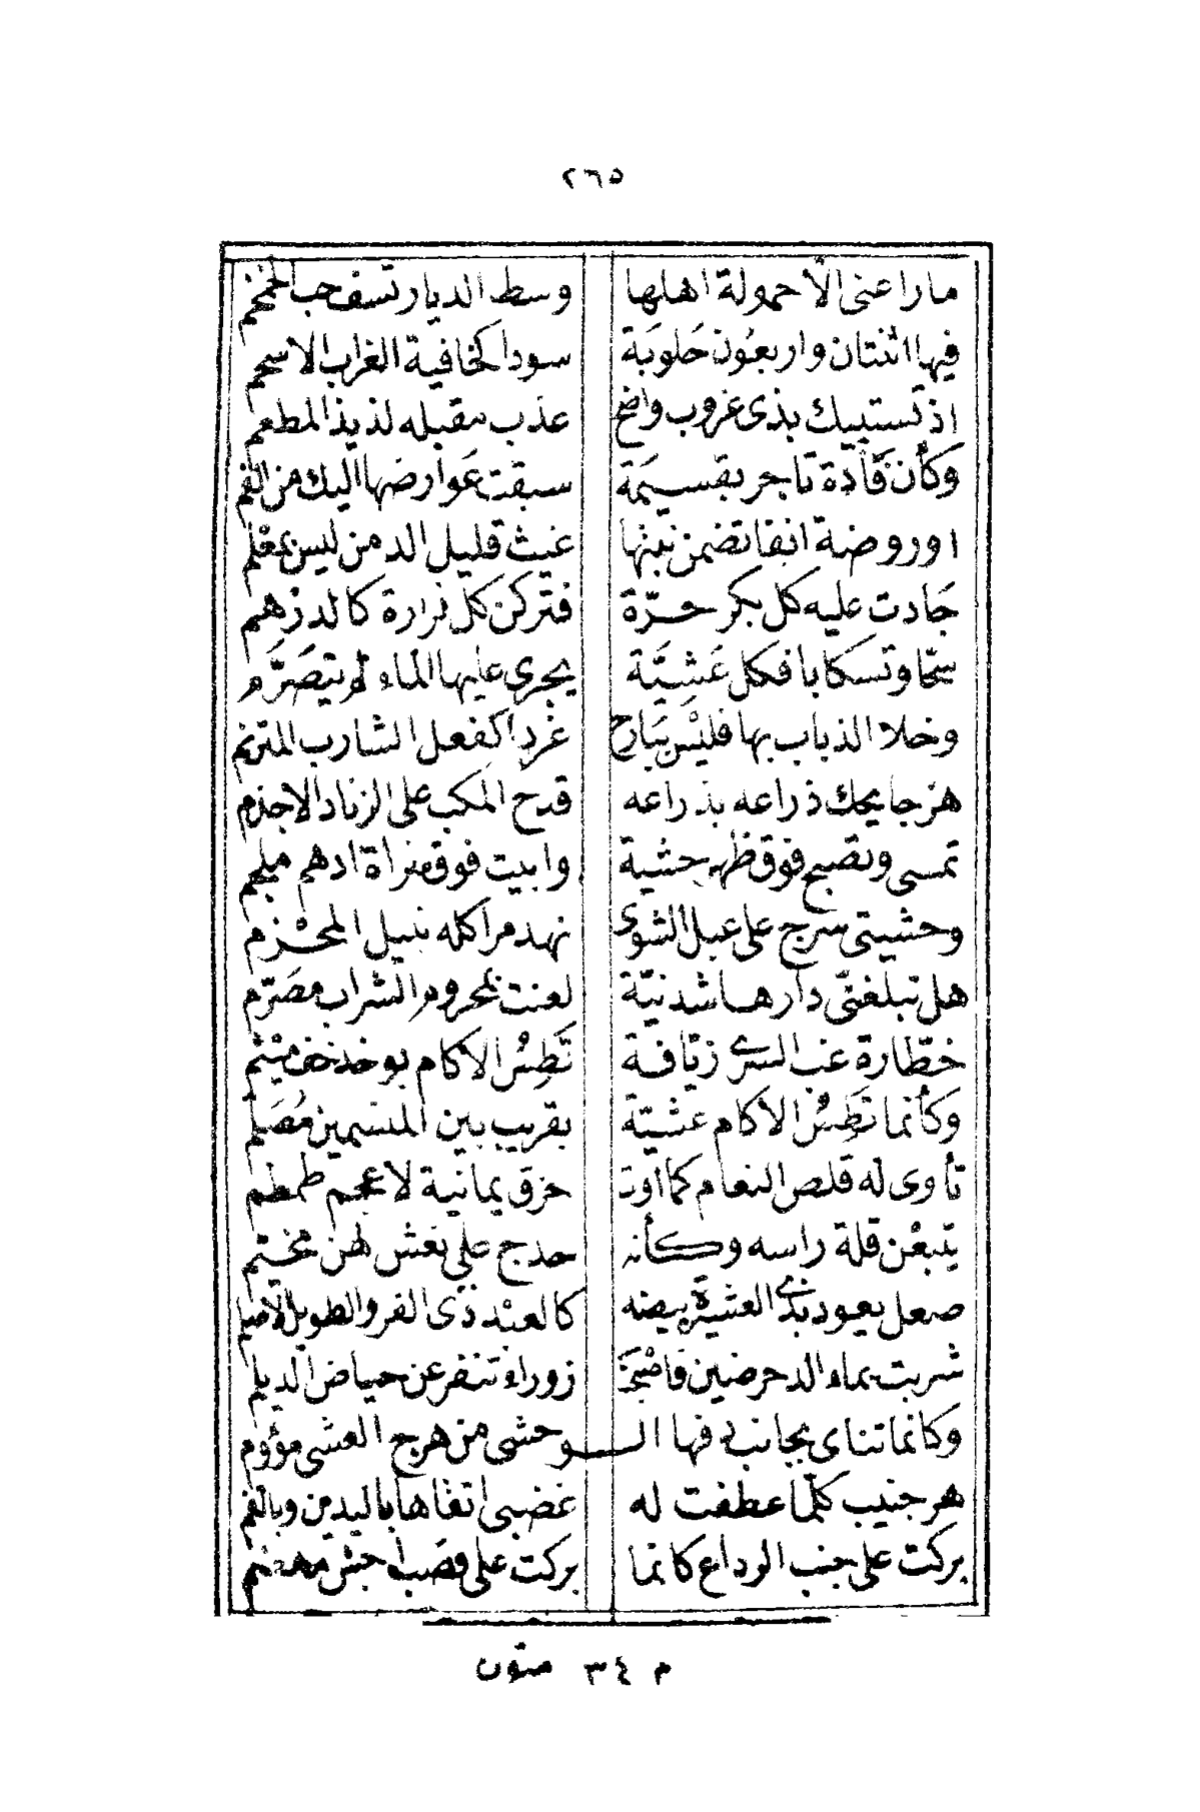 ٢٦٥
ماراعنى الّا حمولة اهلها وسط الديار تسف حب الخمخم
فيها اثنتان واربعُون حَلوبَة سودا كخافية الغراب الاسحم
اذ تستبيك بذى غروب واضح عذب مقبله لذيذ المطعم
وكأن فَأدة تاجر بقسيمَة سبقت عَوارضها اليك من الفم
اوروضة انفا تضمن نبتها غيث قليل الدمن ليس بمعْلم
جَادت عليه كل بكر حرّة فتركن كل قرارة كالدرْهم
سحّا وتسكابا فكل عَشِيَّة يجرى عليها الماء لم يتصَرَّم
وخلا الذباب بها فليْس بَبارح غَردا كفعل الشارب المترنم
هزجا يحك ذراعه بذراعه قدح المكب على الزناد الاجذم
تمسى وتصبح فوق ظهر حشية وابيت فوق سراة ادهم ملجم
وحشيتى سرج على عبل الشوى نهد مراكله نبيل المحْزم
هل تبلغنّى دارها شدنيّة لعنت بمحروم الشراب مصَرّم
خطّارة غب السرى زيّافة تَطِسُ الاكام بوخد خف ميْثم
وكأنما تَطِسُ الاكام عشيّة بقريب بين المنسمين مُصَلّم
تأوى له قلص النعام كما اوت حزق يمانية لاعجم طمطم
يتبعْن قلة راسه وكأنه حدج على نعْش لهن مخيّم
صعل يعود بذى العشيرة بيضه كالعبْد ذى الفرو الطويل الاصلم
شربت بماء الدحرضين فاصْبحَت زوراء تنفر عن حياض الديلم
وكانما تناى بجانب دفها الـ ـوحشى من هزج العشى مؤوم
هر جنيب كلّما عطفت له غضبى اتقاها باليدين وبالفم
بركت على جنب الرداع كانما بركت على قصَب اجش مهضم
م ٣٤ متون